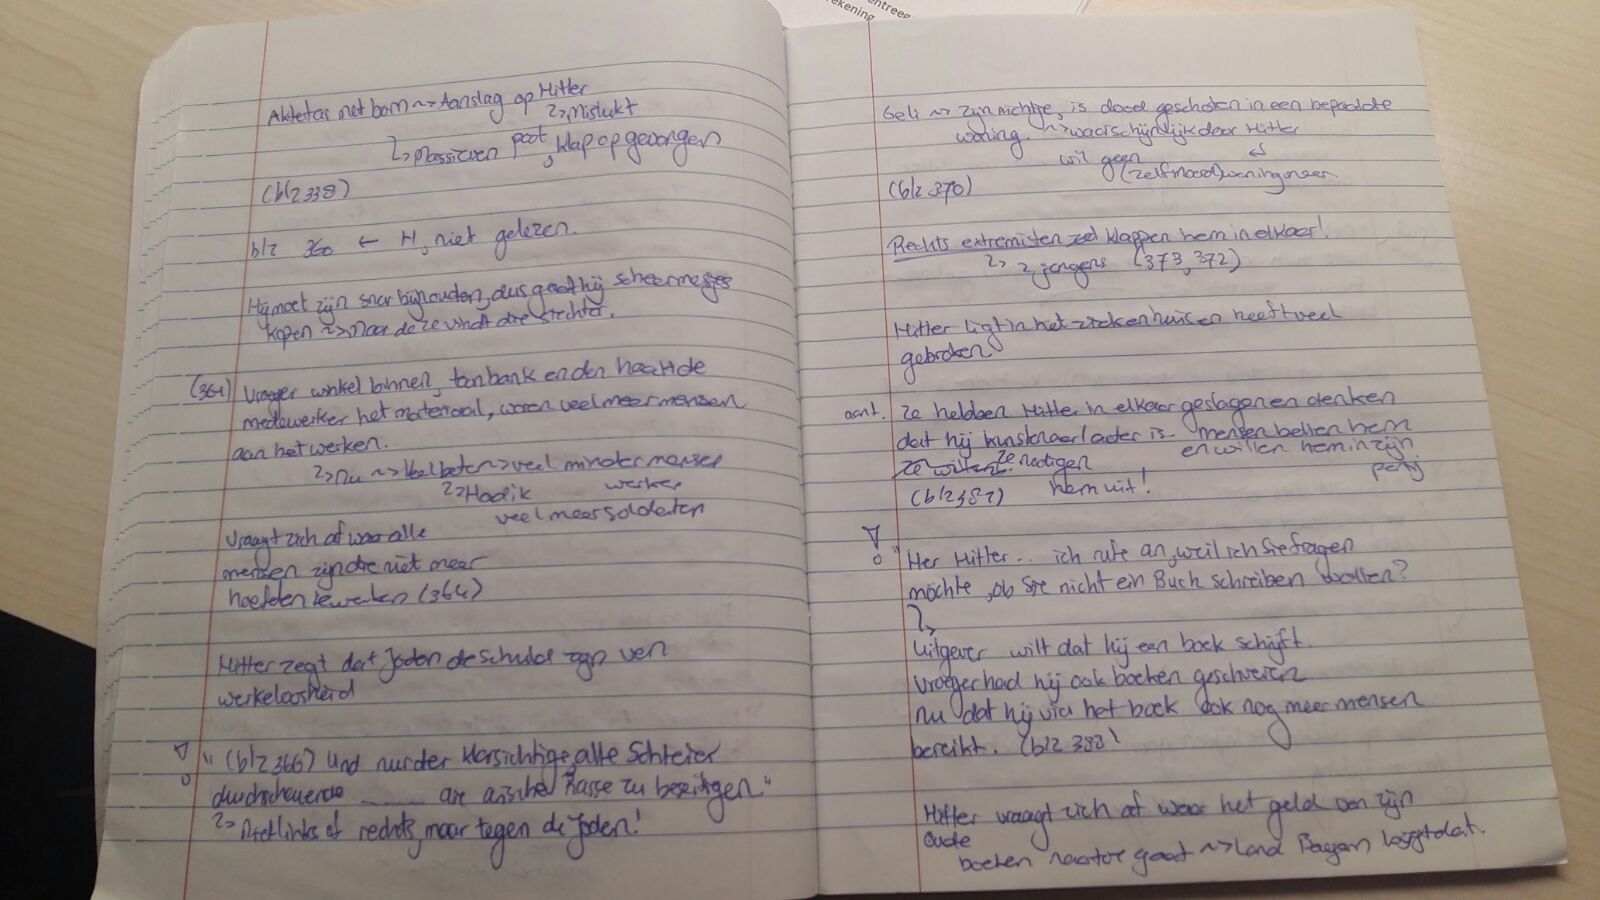 entreeg
ekening
Aktetas met bom ~> Aanslag op Hitler
↳ Mislukt
↳ Massieven poot, klap opgevangen
(blz 338)
blz 360 ← H, niet gelezen.
Hij moet zijn snor bijhouden, dus gaat hij scheermesjes
kopen ~> maar deze vindt die slechter.
(364) Vroeger winkel binnen, toonbank en dan haalt de
medewerker het materiaal, waren veel meer mensen
aan het werken.
↳ Nu ~> veel minder mensen
↳ Hadik werken
veel meer soldaten
Vraagt zich af waar alle
mensen zijn die niet meer
hoefden te werken (364)
Hitler zegt dat Joden de schuld zijn van
werkeloosheid
"(blz 366) Und nur der klarsichtige, alte Schreier
durchscheuende ........ die arische Rasse zu beseitigen."
↳ Niet links of rechts, maar tegen de Joden!
Geli ~> zijn nichtje, is dood geschoten in een bepaalde
woning. ~> waarschijnlijk door Hitler
wil geen ↲
(blz 370) (zelfmoord) woning meer
Rechts extremisten klappen hem in elkaar!
↳ 2 jongens (373, 372)
Hitler ligt in het ziekenhuis en heeft veel
gebroken
aant. ze hebben Hitler in elkaar geslagen en denken
dat hij leider is. mensen bellen hem
ze willen ze nodigen en willen hem in zijn
(blz 382) hem uit! partij
"Her Hitler... ich rufe an, weil ich Sie fragen
möchte, ob Sie nicht ein Buch schreiben wollen?
↳
Uitgever wilt dat hij een boek schrijft.
Vroeger had hij ook boeken geschreven
nu dat hij via het boek ook nog meer mensen
bereikt. (blz 383)
Hitler vraagt zich af waar het geld van zijn
oude
boeken naartoe gaat ~> Land Bayern krijgt dat.